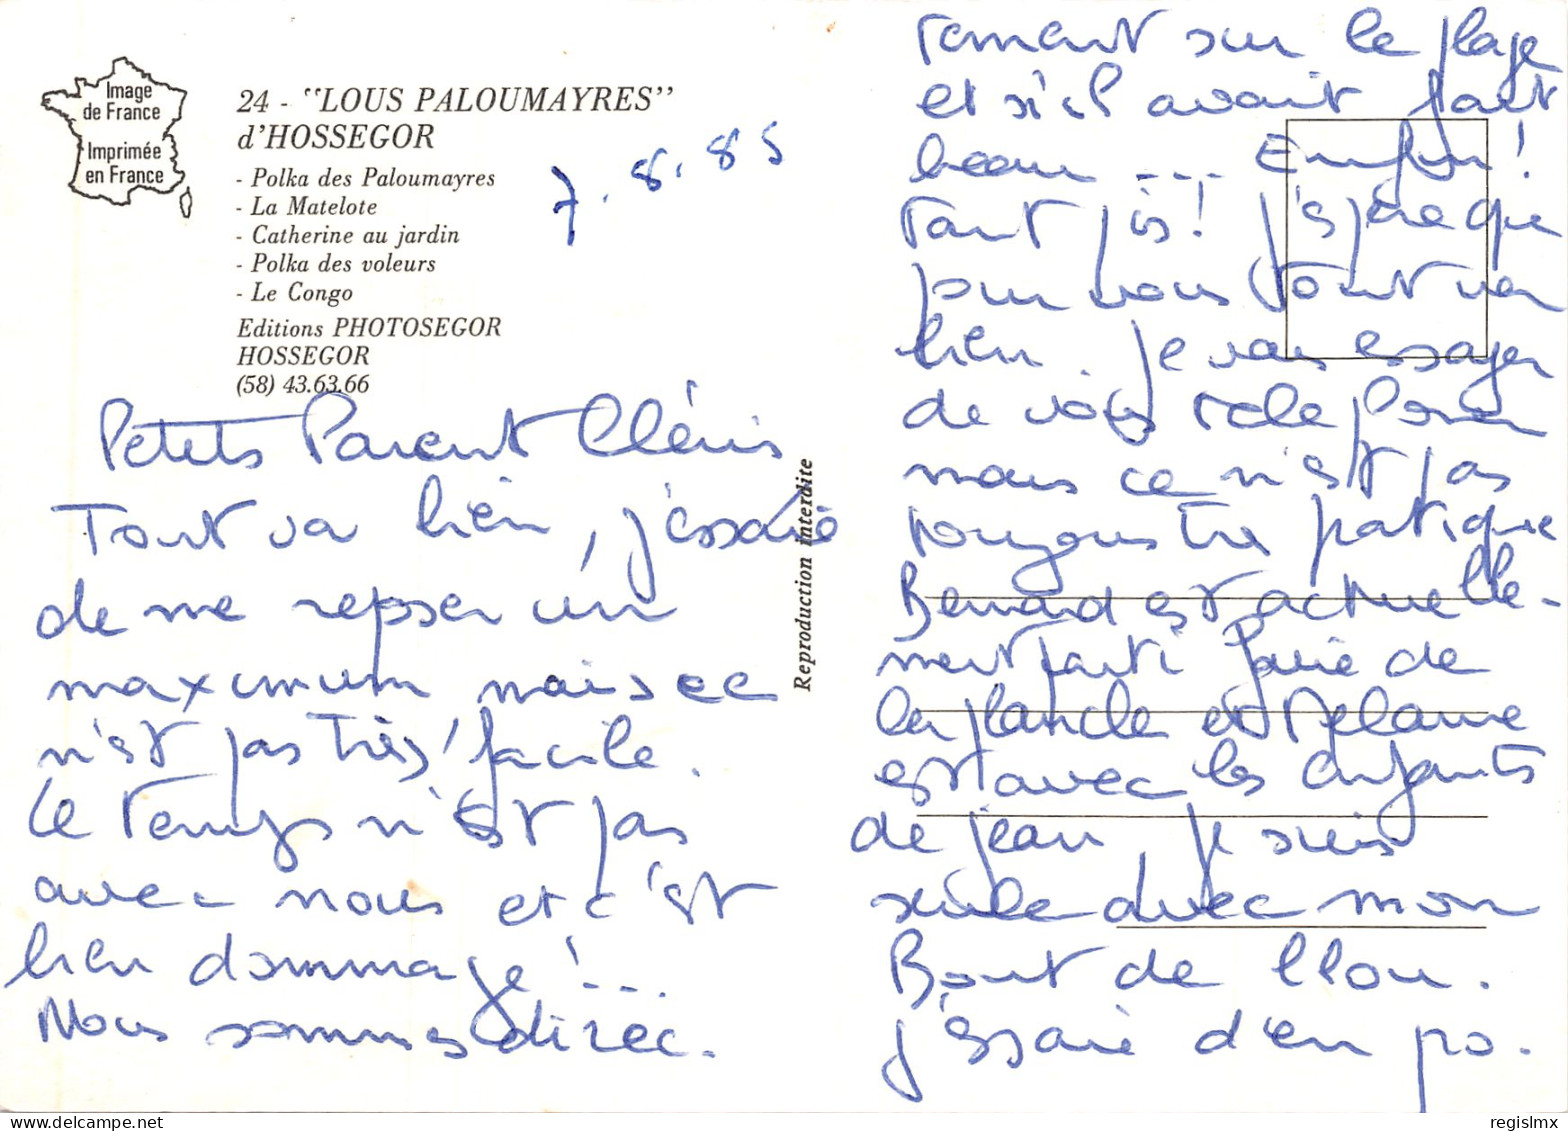 Image
de France
Imprimée
en France
24 - "LOUS PALOUMAYRES"
d'HOSSEGOR
- Polka des Paloumayres
- La Matelote
- Catherine au jardin
- Polka des voleurs
- Le Congo
Editions PHOTOSEGOR
HOSSEGOR
(58) 43.63.66
7.8.85
Petits Parent Chéris
Tout va bien, j'éssaie
de me repser un
maxcimum mais ce
n'est pas très facile.
Le temps n'est pas
avec nous et c'est
bien dommage!...
Nous sommes direc.
Reproduction interdite
tement sur le plage
et s'il avait fait
beau ... Enfin!
tant pis! j'espère que
pour vous tout va
bien. je vais essayer
de vous télephoner
mais ce n'est pas
toujours très pratique
Bernard est actuelle-
ment parti faire de
la planche et Mélanie
est avec les enfants
de jean, je suis
seule avec mon
Bout de Chou.
j'éssaie d'en po.
regislmx